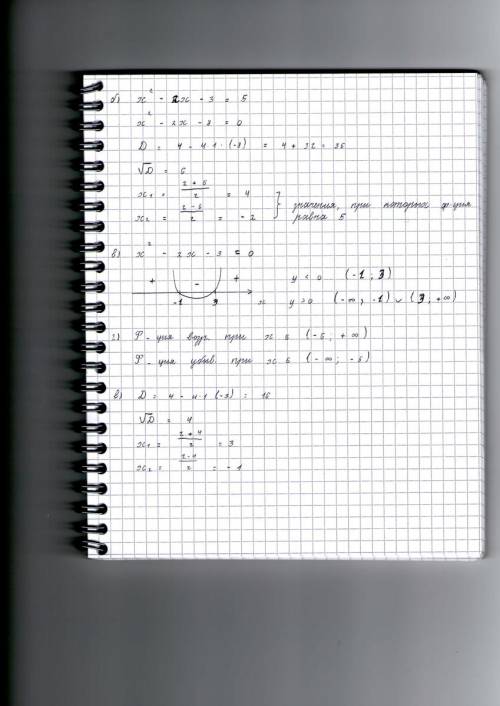 б) x² - 2x - 3 = 5
x² - 2x - 8 = 0
D = 4 - 4·1·(-8) = 4 + 32 = 36
√D = 6
x₁ = (2 + 6)/2 = 4
x₂ = (2 - 6)/2 = -2 } значения, при которых ф-ция равна 5
в) x² - 2x - 3 = 0
+ - + y < 0 (-1; 3)
-1 3 x y > 0 (-∞; -1) ∪ (3; +∞)
г) Ф-ция возр. при x ∈ (-5; +∞)
Ф-ция убыв. при x ∈ (-∞; -5)
в) D = 4 - 4·1·(-3) = 16
√D = 4
x₁ = (2 + 4)/2 = 3
x₂ = (2 - 4)/2 = -1